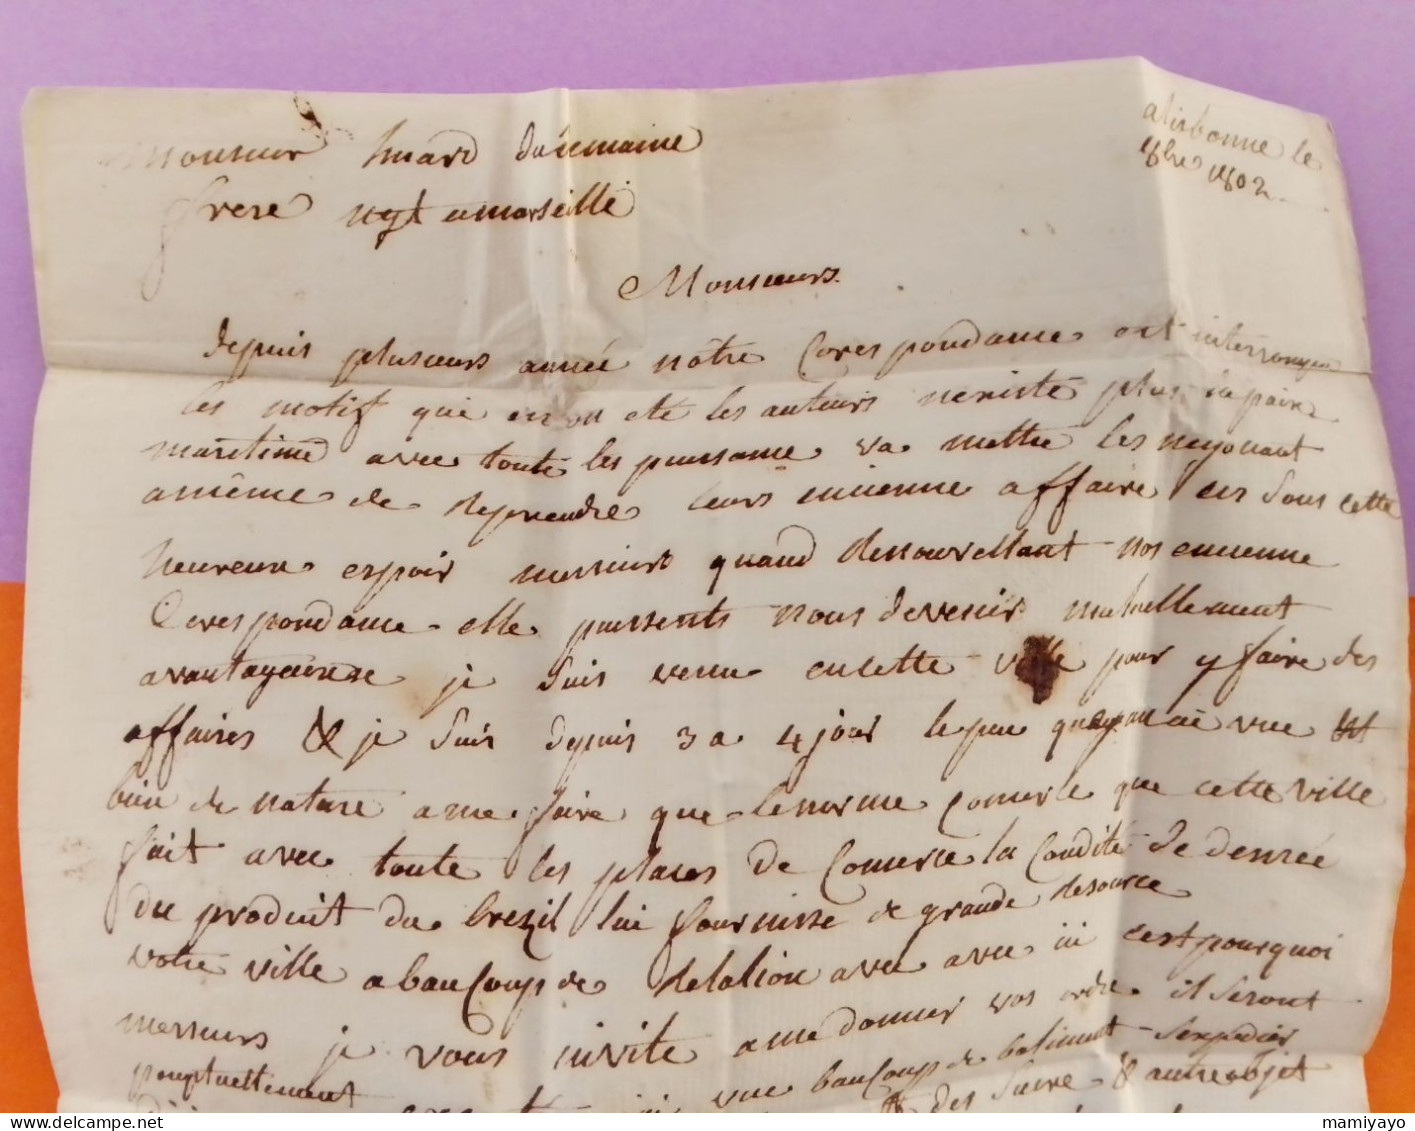 alisbonne le
8bre 1802
Monsieur huard
frere ngt a marseille
Monsieurs
depuis plusieurs année nôtre Corespondame ont interrompu
les motif qui en on eté les auteurs n'existe plus la paix
maritime avec toute les puissame va mettre les negosiant
a même de reprendre leurs encienne affaire ces dous cette
heureux espoir messieurs quand renouvellant nos encienne
Corespondame elle puissents nous devenir mutuellement
avantageuse je suis venu encette ville pour y faire des
affaires & je suis depuis 3 a 4 jour le peu que ai vue est
bien de nature a me faire que lenorme Comerce que cette ville
fait avec toute les places de Comerce la de denrée
du produit du brezil lui fournisse de grande resource
votre ville a beauCoups de relation avec avec ici c'est pourquoi
messieurs je vous invite a me donner vos ordre il seront
ponptuellement vue beauCoups de batiment s'expedier
des sucre & autre objet
mamiyayo
delcampe.net